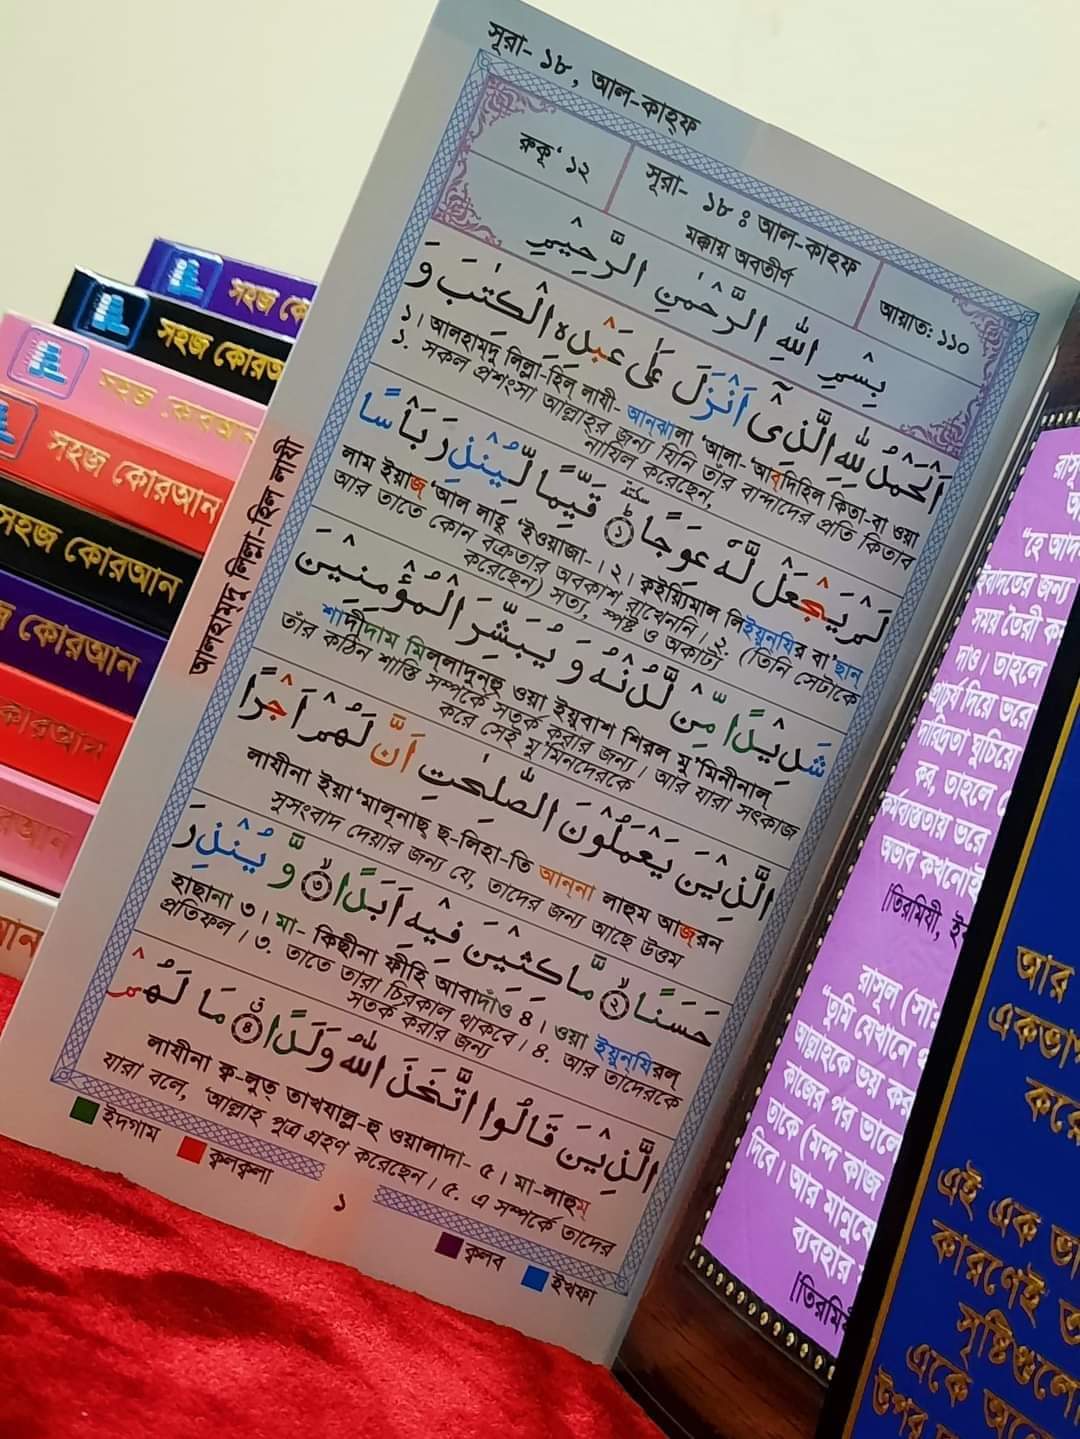 সূরা- ১৮, আল-কাহ্ফ
রুকূ‘ ১২
সূরা- ১৮ ঃ আল-কাহফ
মক্কায় অবতীর্ণ
আয়াত: ১১০
بِسْمِ اللّٰهِ الرَّحْمٰنِ الرَّحِيْمِ
اَلْحَمْدُ لِلّٰهِ الَّذِىْٓ اَنْزَلَ عَلٰى عَبْدِهِ الْكِتٰبَ وَ
১। আলহাম্দু লিল্লা-হিল্ লাযী- আনঝালা ‘আলা-‘আবদিহিল কিতা-বা ওয়া
১. সকল প্রশংসা আল্লাহর জন্য যিনি তাঁর বান্দাদের প্রতি কিতাব
নাযিল করেছেন,
لَمْ يَجْعَلْ لَّهٗ عِوَجًا ۜ ۝١ قَيِّمًا لِّيُنْذِرَ بَاْسًا
লাম ইয়াজ্ ‘আল লাহূ ‘ইওয়াজা-। ২। ক্বইয়্যিমাল লিইয়ুনযির বা’ছান
আর তাতে কোন বক্রতার অবকাশ রাখেননি। ২. (তিনি সেটাকে
করেছেন) সত্য, স্পষ্ট ও অকাট্য
شَدِيْدًا مِّنْ لَّدُنْهُ وَ يُبَشِّرَ الْمُؤْمِنِيْنَ
শাদীদাম মিল্লাদুন্হু ওয়া ইয়ুবাশ শিরল মু’মিনীনাল্
তাঁর কঠিন শাস্তি সম্পর্কে সতর্ক করার জন্য। আর যারা সৎকাজ
করে সেই মু’মিনদেরকে
الَّذِيْنَ يَعْمَلُوْنَ الصّٰلِحٰتِ اَنَّ لَهُمْ اَجْرًا
লাযীনা ইয়া‘মালূনাছ ছ-লিহা-তি আন্না লাহুম আজ্রন
সুসংবাদ দেয়ার জন্য যে, তাদের জন্য আছে উত্তম
حَسَنًا ۝٢ مَّاكِثِيْنَ فِيْهِ اَبَدًا ۝٣ وَّ يُنْذِرَ
হাছানা ৩। মা- কিছীনা ফীহি আবাদাঁও ৪। ওয়া ইয়ুন্যিরল্
প্রতিফল। ৩. তাতে তারা চিরকাল থাকবে। ৪. আর তাদেরকে
সতর্ক করার জন্য
الَّذِيْنَ قَالُوا اتَّخَذَ اللّٰهُ وَلَدًا ۝٤ مَا لَهُمْ
লাযীনা ক্ব-লুত্ তাখযাল্ল-হু ওয়ালাদা- ৫। মা-লাহুম্
যারা বলে, ‘আল্লাহ পুত্র গ্রহণ করেছেন। ৫. এ সম্পর্কে তাদের
ইদগাম
ক্বলক্বলা
১
ক্বলব
ইখফা
আলহাম্দু লিল্লা-হিল লাযী
সহজ কো
সহজ কোরআ
সহজ কোরআন
সহজ কোরআন
সহজ কোরআন
কোরআন
কারআন
“হে আদ
ইবাদতের জন্য
সময় তৈরী ক
দাও। তাহলে
প্রাচুর্য দিয়ে ভরে
দারিদ্রতা ঘুচিয়ে
কর, তাহলে
কর্মব্যস্ততায় ভরে
অভাব কখনোই
[তিরমিযী, ই
রাসূল (সা
“তুমি যেখানে
আল্লাহকে ভয় কর
কাজের পর ভালে
তাকে (মন্দ কাজ
দিবে। আর মানুষে
ব্যবহার
[তিরমি
আর
একভা
করে
এই এক ভা
কারণেই ত
সৃষ্টিগুলো
একে অন্যে
উপর